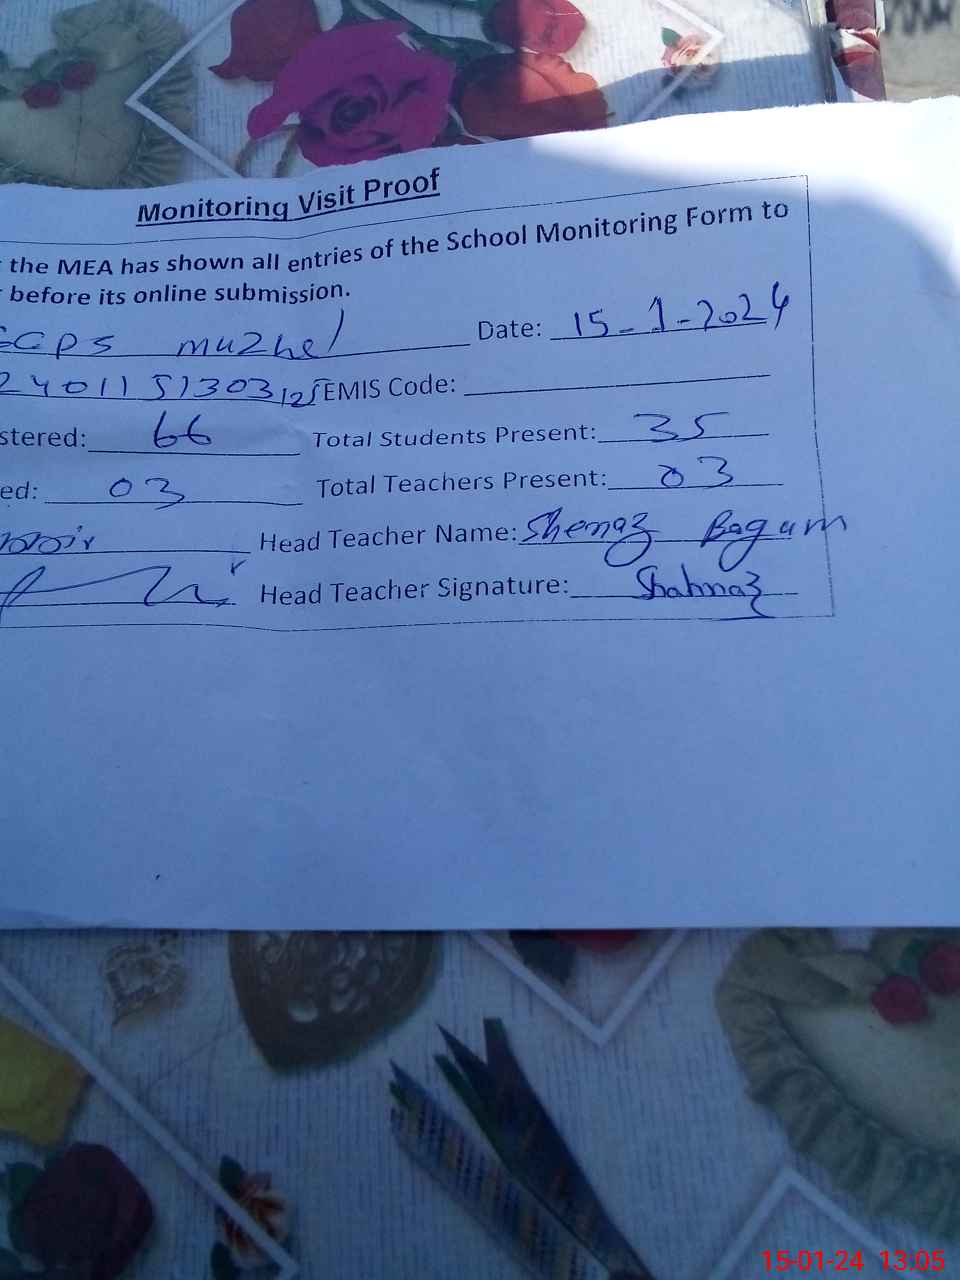 Monitoring Visit Proof
the MEA has shown all entries of the School Monitoring Form to
before its online submission.
GGPS muzhel Date: 15-1-2024
EMIS Code:
stered: 66 Total Students Present: 35
ed: 03 Total Teachers Present: 03
Head Teacher Name: Shemaz Bagum
Head Teacher Signature: Shahnaz
15-01-24 13:05